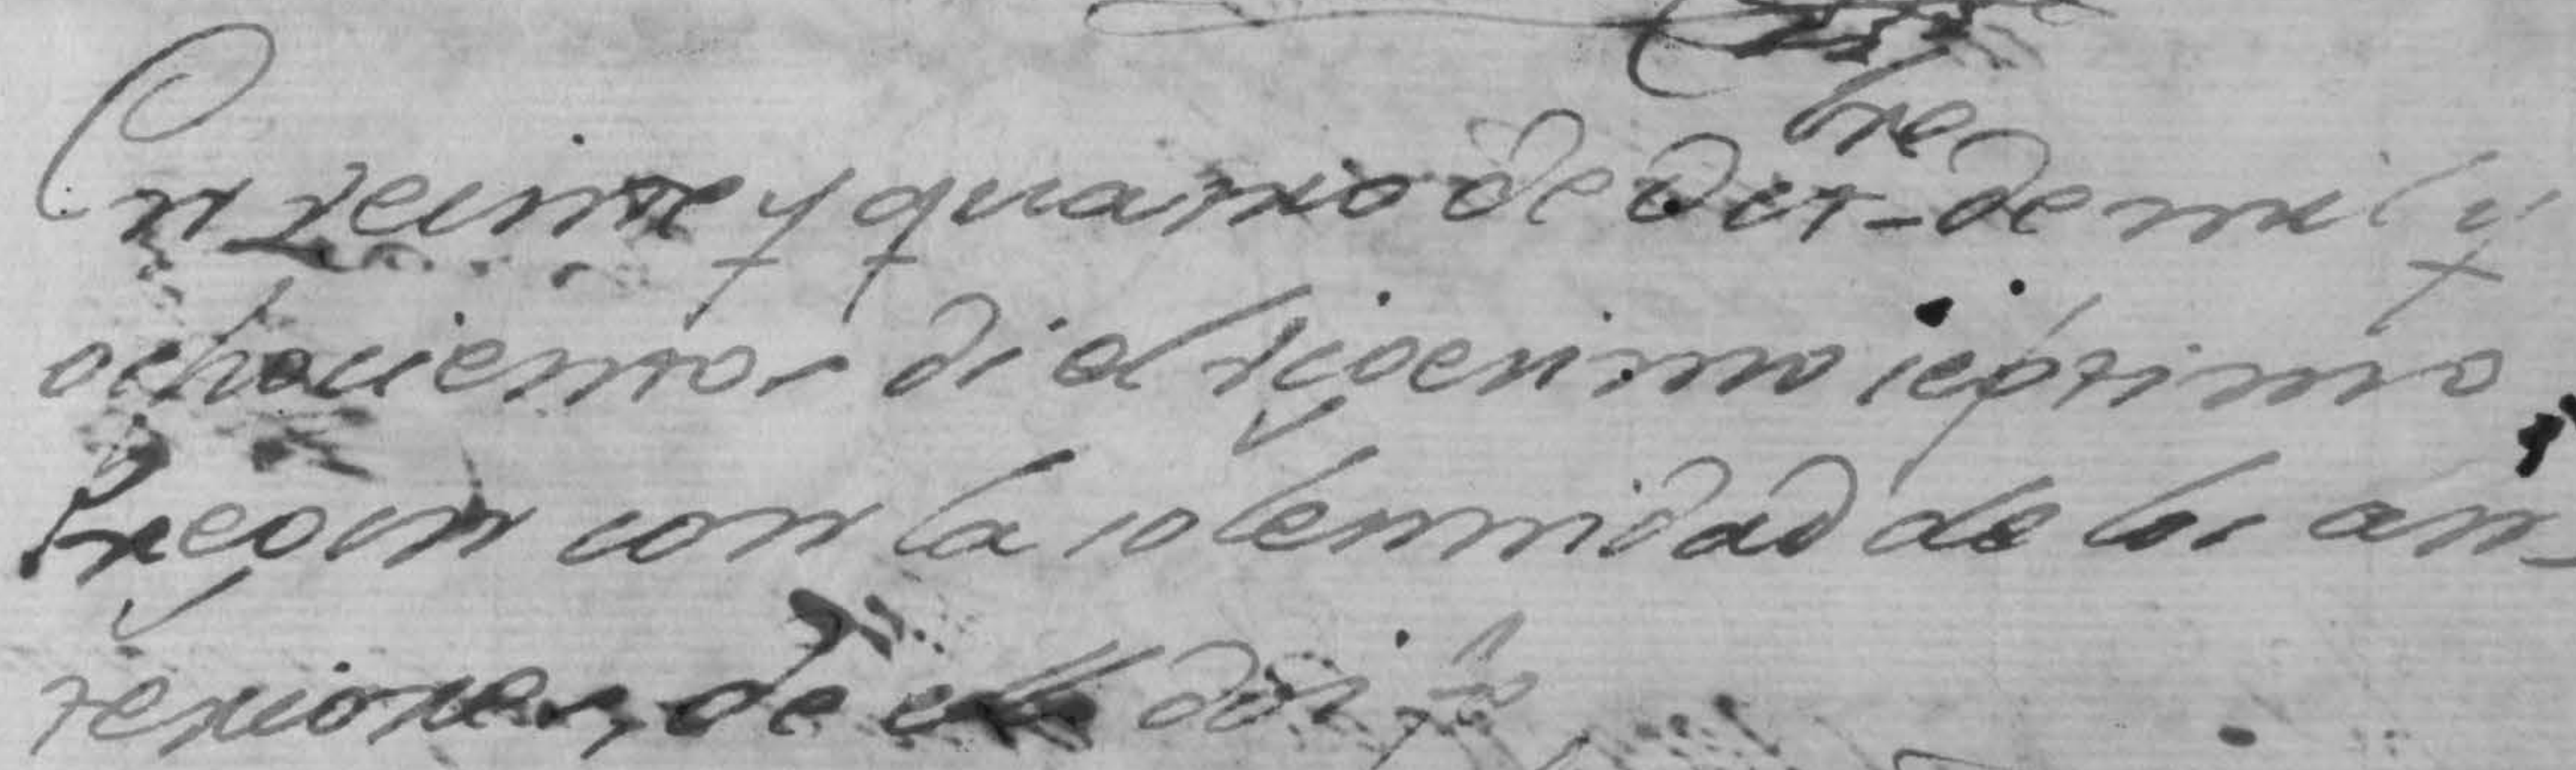 En veinte y quatro de Dizbre de mil y
ochocientos di el vigesimo septimo
Pregon con la solemnidad de los an-
teriores de ello doi fe